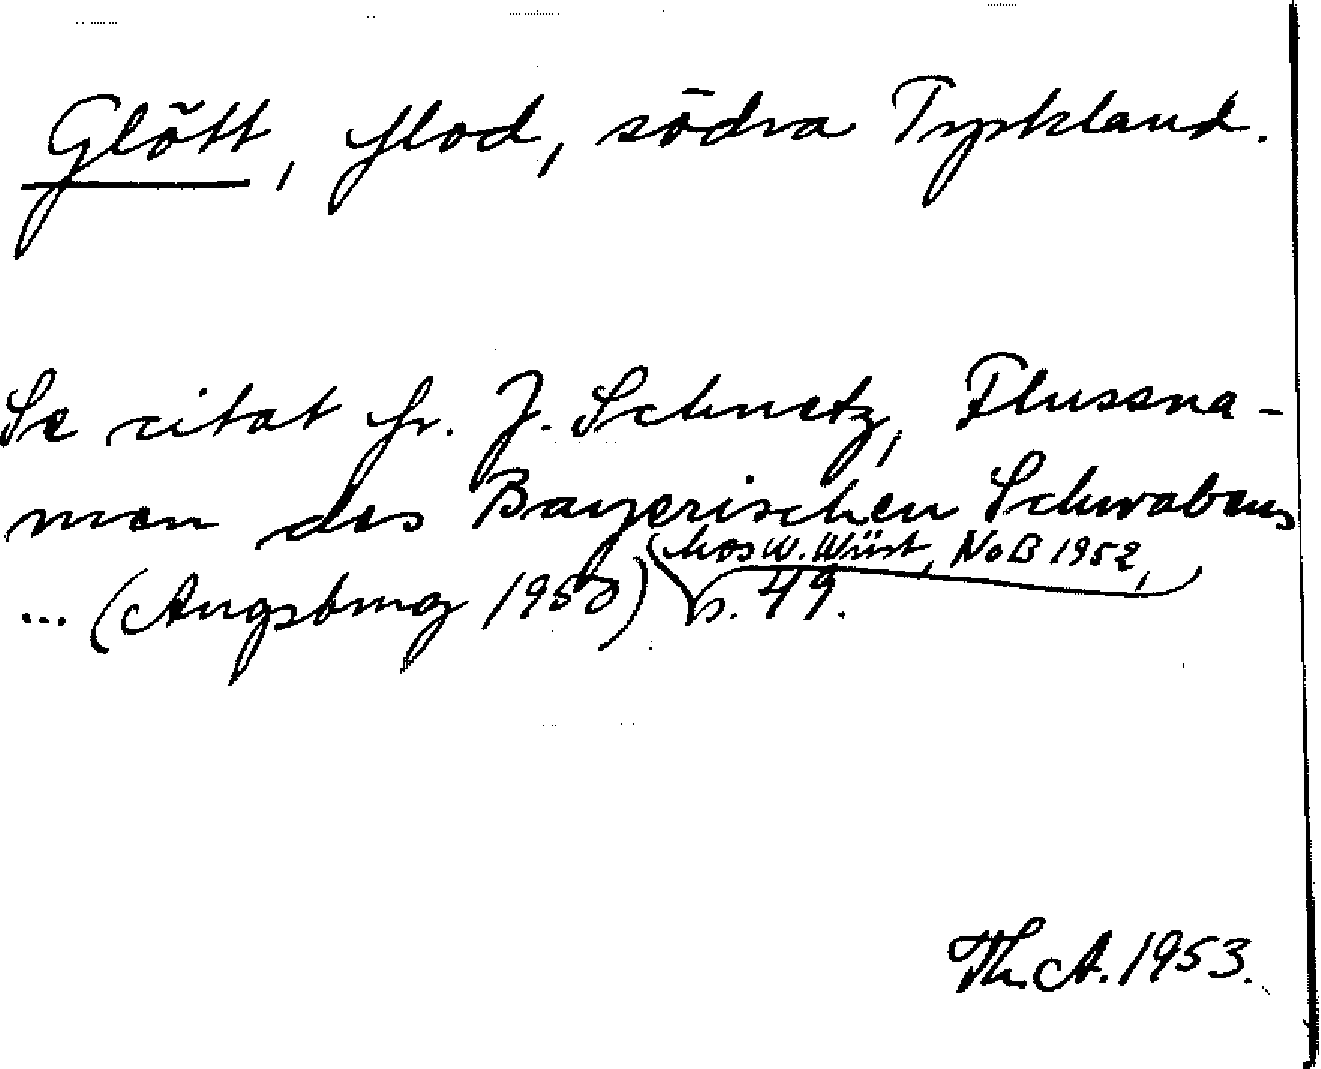 Glött, flod, södra Tyskland.
Se citat fr. J. Schnetz, Flussna-
men des Bayerischen Schwabens
(hos W. Wüst, NoB 1952,
... (Augsburg 1950) s. 49.
Th. A. 1953.